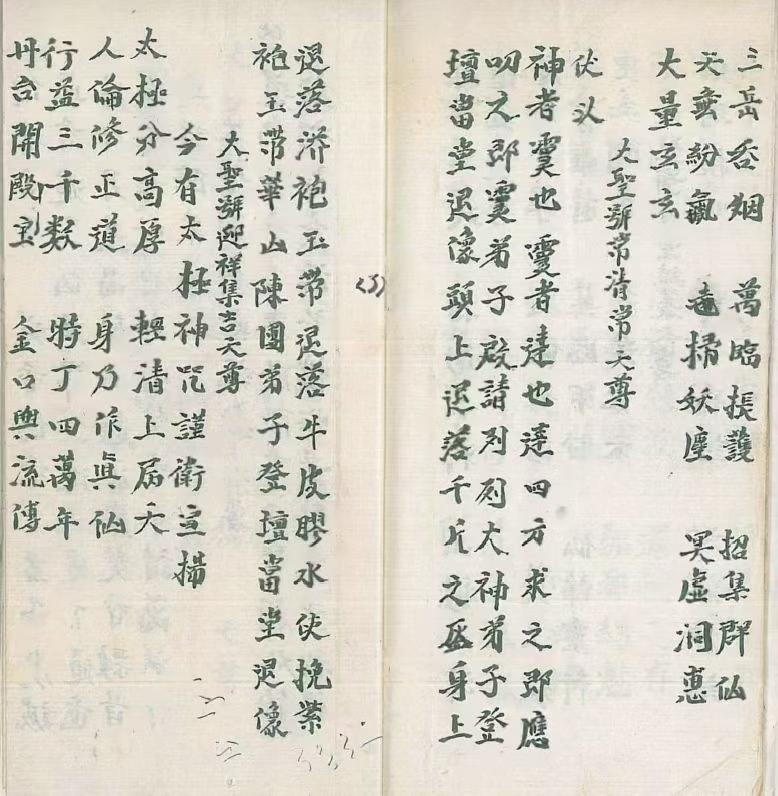 三岳吞烟 萬臨振護 招集群仙
天壺紛氤 毒掃妖塵 冥虛洞惠
大量玄玄
大聖號常清常天尊
伏以
神者靈也靈者達也達四方求之即應
叩之即靈弟子啟請列列大神弟子登
壇當堂退像頭上退落千片之盔身上
退落济袍玉带退落牛皮膠水伏挽紫
袍玉带華山陳團弟子登壇當堂退像
大聖號迎祥集吉天尊
今有太極神咒謹衛宣揚
太極分高厚 輕清上屆天
人倫修正道 身乃作真仙
行益三千数 時丁四萬年
丹台開殿宝 金口與流傳